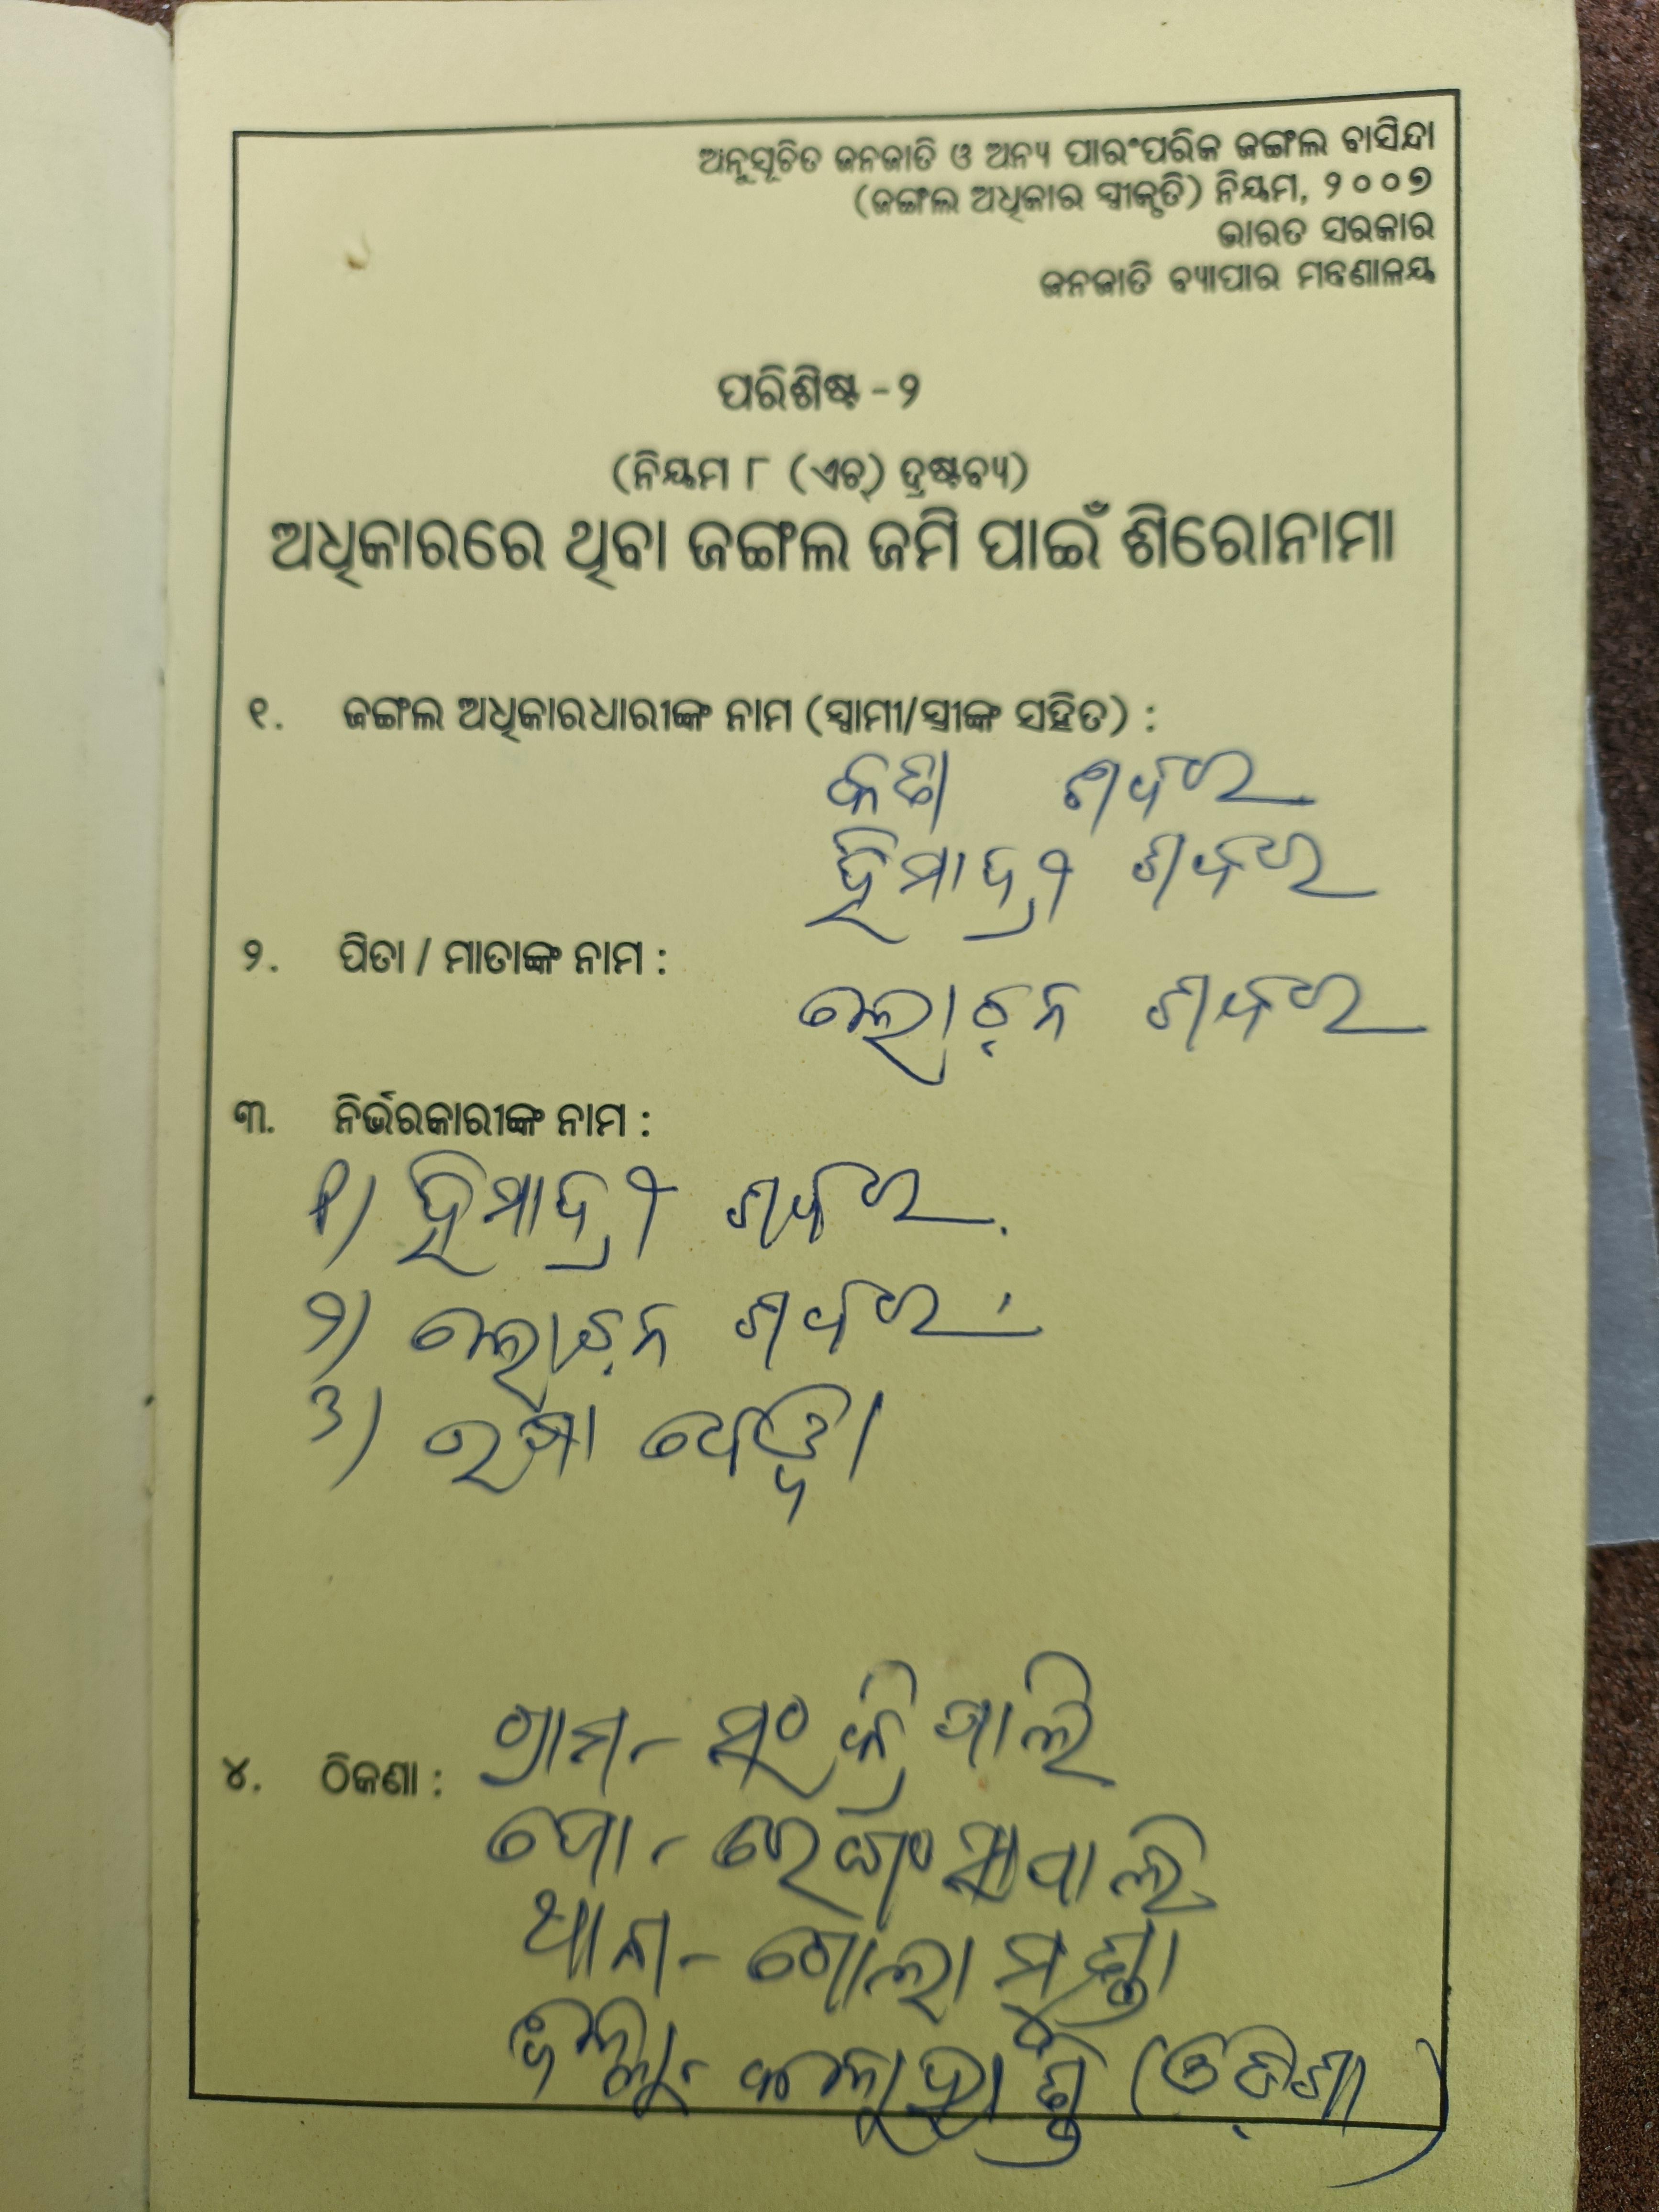 ଅନୁସୂଚିତ ଜନଜାତି ଓ ଅନ୍ୟ ପାରଂପରିକ ଜଙ୍ଗଲ ବାସିନ୍ଦା
(ଜଙ୍ଗଲ ଅଧିକାର ସ୍ୱୀକୃତି) ନିୟମ, ୨୦୦୭
ଭାରତ ସରକାର
ଜନଜାତି ବ୍ୟାପାର ମନ୍ତ୍ରଣାଳୟ
ପରିଶିଷ୍ଟ - ୨
(ନିୟମ ୮ (ଏଚ୍) ଦ୍ରଷ୍ଟବ୍ୟ)
ଅଧିକାରରେ ଥିବା ଜଙ୍ଗଲ ଜମି ପାଇଁ ଶିରୋନାମା
୧. ଜଙ୍ଗଲ ଅଧିକାରଧାରୀଙ୍କ ନାମ (ସ୍ୱାମୀ/ସ୍ତ୍ରୀଙ୍କ ସହିତ) :
ଶବର
ହିମାଦ୍ରୀ ଶବର
୨. ପିତା / ମାତାଙ୍କ ନାମ :
ଲୋଚନ ଶବର
୩. ନିର୍ଭରକାରୀଙ୍କ ନାମ :
୧) ହିମାଦ୍ରୀ ଶବର
୨) ଲୋଚନ ଶବର
୩)
୪. ଠିକଣା : ଗ୍ରାମ-
ପୋ-
ଥାନା- ଗୋଲାମୁଣ୍ଡା
ଜିଲ୍ଲା- କଳାହାଣ୍ଡି (ଓଡ଼ିଶା)